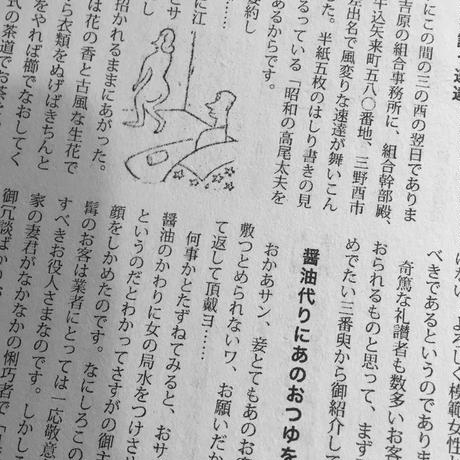 速達
にこの間の三の酉の翌日でありま
吉原の組合事務所に、組合幹部殿、
牛込矢来町五八〇番地、三野酉市
差出名で風変りな速達が舞いこん
た。半紙五枚のはしり書きの見
るっている「昭和の高尾太夫を
あるからです。
接約し
に江
とサ
招かれるままにあがった。
は花の香と古風な生花で
ら衣類をぬげばきちんと
をやれば櫛でなおしてく
式の茶道でお茶
はない、よろしく模範女性に
べきであるというのでありま
奇篤な礼讃者も数多いお客
おられるものと思って、まず
めでたい三番臾から御紹介して
醤油代りにあのおつゆを
おかあサン、妾とてもあのお客
敷つとめられないワ、お願いだか
て返して頂戴ヨ……
何事かとたずねてみると、おサ
醤油のかわりに女の局水をつけさせ
というのだとわかってさすがの御主
顔をしかめたのです。なにしろこの
髯のお客は業者にとっては一応敬意
すべきお役人さまなのです。しかし
家の妻君がなかなかの悧巧者で
御冗談ばかり